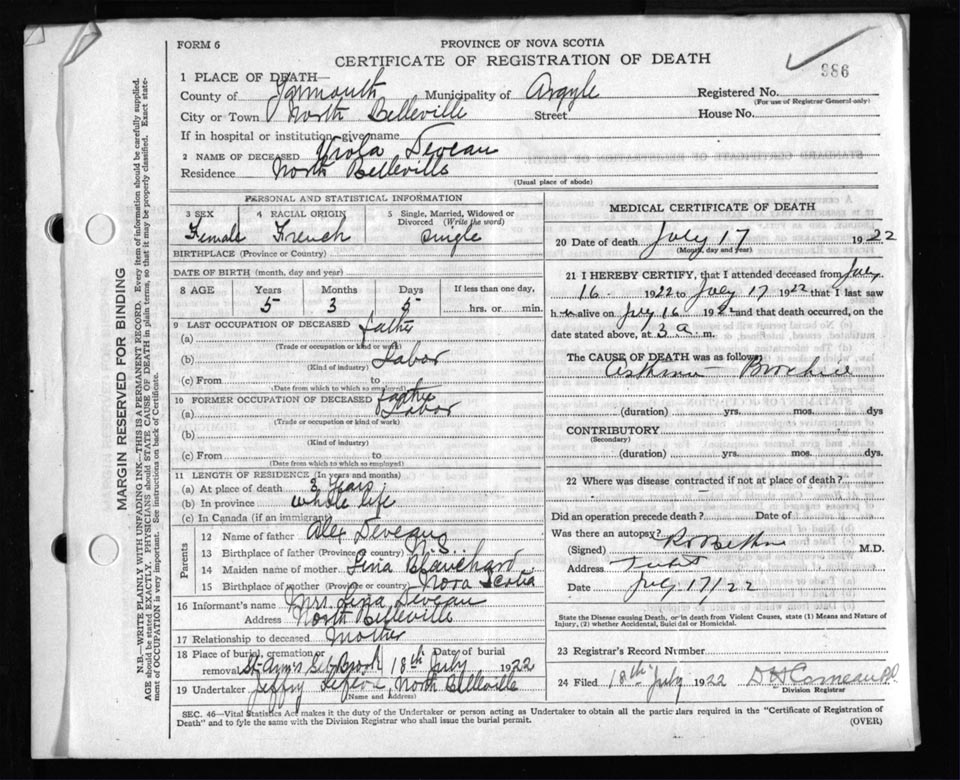 FORM 6
PROVINCE OF NOVA SCOTIA
CERTIFICATE OF REGISTRATION OF DEATH
986
1 PLACE OF DEATH—
County of Yarmouth Municipality of Argyle Registered No.
(For use of Registrar General only)
City or Town North Belleville Street House No.
If in hospital or institution, give name
2 NAME OF DECEASED Viola Deveau
Residence North Belleville
(Usual place of abode)
PERSONAL AND STATISTICAL INFORMATION
3 SEX Female
4 RACIAL ORIGIN French
5 Single, Married, Widowed or Divorced (Write the word) Single
BIRTHPLACE (Province or Country)
DATE OF BIRTH (month, day and year)
8 AGE Years 5 Months 3 Days 5 If less than one day, hrs. or min.
9 LAST OCCUPATION OF DECEASED father
(a)
(Trade or occupation or kind or work)
(b) Labor
(Kind of industry)
(c) From to
(Date from which to which so employed)
10 FORMER OCCUPATION OF DECEASED father
(a) Labor
(Trade or occupation or kind of work)
(b)
(Kind of industry)
(c) From to
(Date from which to which so employed)
11 LENGTH OF RESIDENCE (In years and months)
(a) At place of death 3 Years
(b) In province whole life
(c) In Canada (if an immigrant)
Parents
12 Name of father Alex Deveau
13 Birthplace of father (Province or country) N.S.
14 Maiden name of mother Lina Blanchard
15 Birthplace of mother (Province or country) Nova Scotia
16 Informant's name Mrs. Lina Deveau
Address North Belleville
17 Relationship to deceased Mother
18 Place of burial, cremation or removal St-Ann's Brook Date of burial 18th July 1922
19 Undertaker Jeffry North Belleville
(Name and Address)
MEDICAL CERTIFICATE OF DEATH
20 Date of death July 17 1922
(Month, day and year)
21 I HEREBY CERTIFY, that I attended deceased from July
16 1922 to July 17 1922 that I last saw
h er alive on July 16 1922 and that death occurred, on the
date stated above, at 3 a m.
The CAUSE OF DEATH was as follows:
Asthma
(duration) yrs. mos. dys
CONTRIBUTORY
(Secondary)
(duration) yrs. mos. dys
22 Where was disease contracted if not at place of death?
Did an operation precede death? Date of
Was there an autopsy?
(Signed) M.D.
Address
Date July 17/22
State the Disease causing Death, or in death from Violent Causes, state (1) Means and Nature of Injury, (2) whether Accidental, Suicidal or Homicidal.
23 Registrar's Record Number
24 Filed 18th July 1922 Comeau
Division Registrar
SEC. 46—Vital Statistics Act makes it the duty of the Undertaker or person acting as Undertaker to obtain all the particulars required in the "Certificate of Registration of
Death" and to fyle the same with the Division Registrar who shall issue the burial permit.
(OVER)
MARGIN RESERVED FOR BINDING
N.B.—WRITE PLAINLY WITH UNFADING INK—THIS IS A PERMANENT RECORD. Every item of information should be carefully supplied.
AGE should be stated EXACTLY. PHYSICIANS should STATE CAUSE OF DEATH in plain terms, so that it may be properly classified. Exact statement of OCCUPATION is very important. See instructions on back of Certificate.